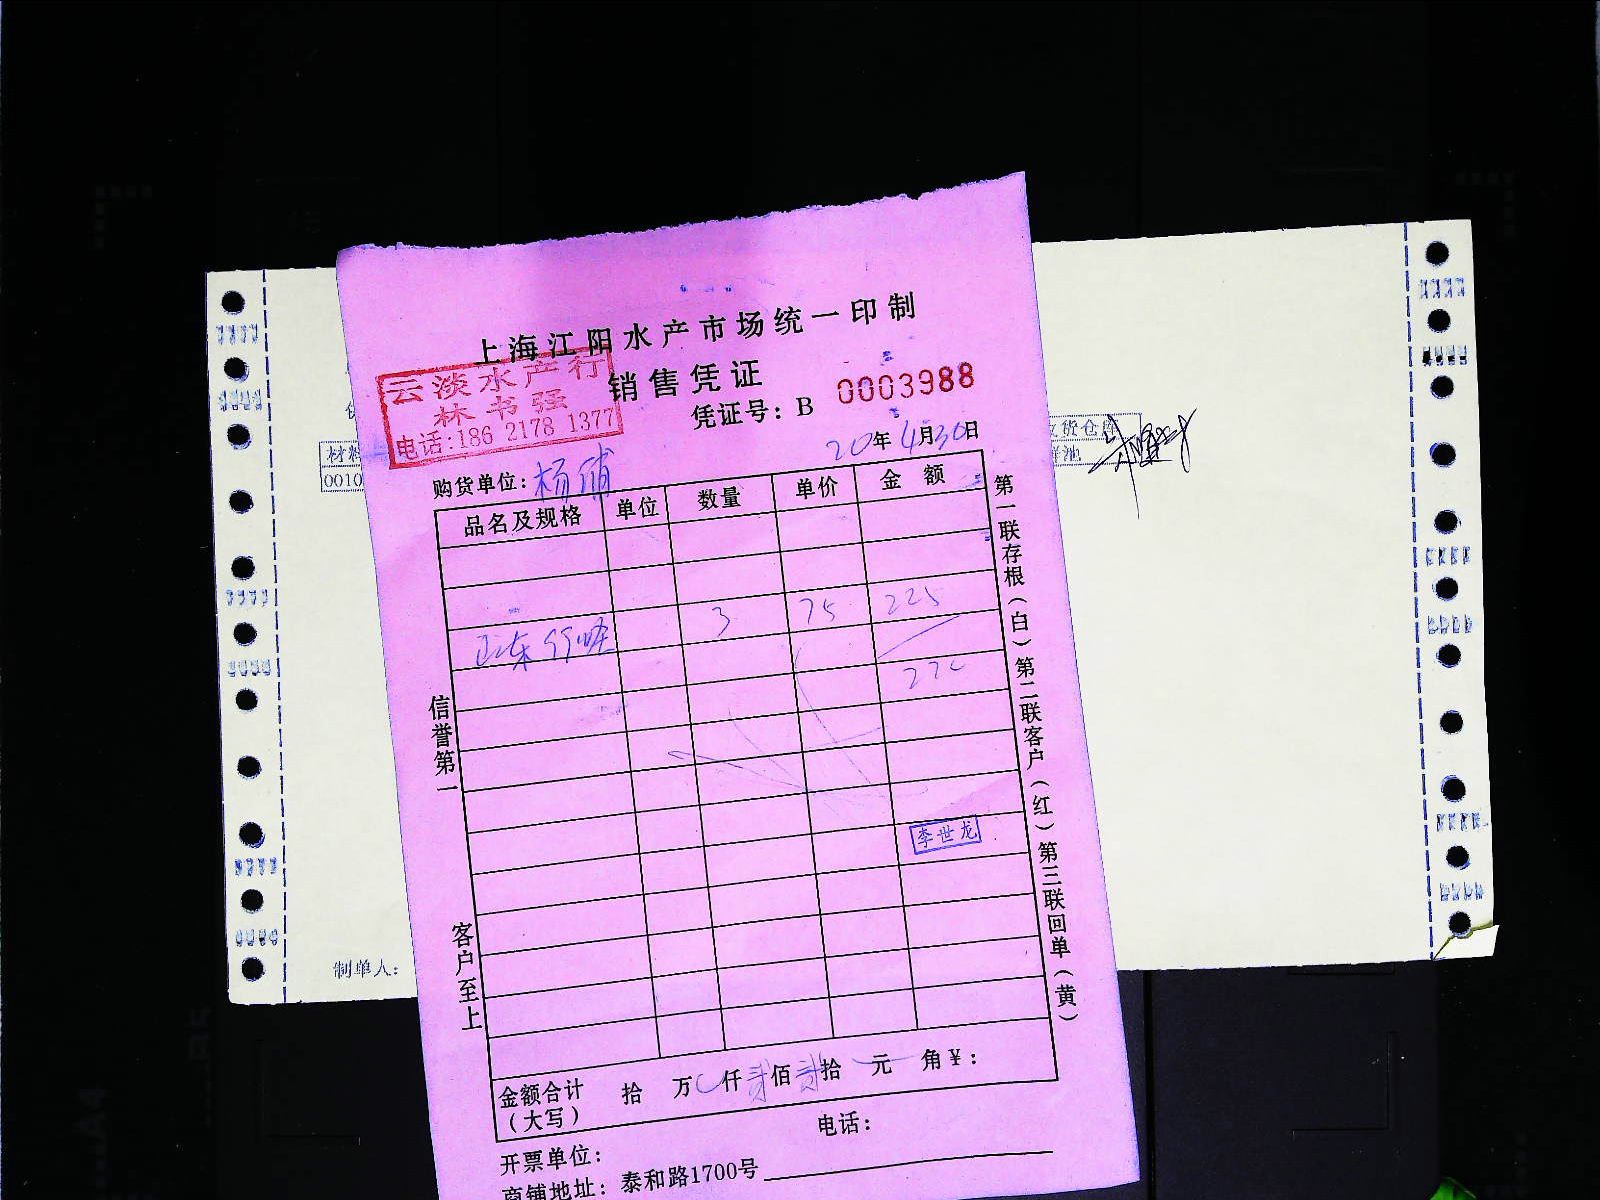 上海江阳水产市场统一印制
云淡水产行
林书强
电话:186 2178 1377
销售凭证
凭证号：B 0003988
20年4月30日
购货单位：杨浦
品名及规格 单位 数量 单价 金额
3 75 225
22
李世龙
信誉第一
客户至上
第一联存根（白）第二联客户（红）第三联回单（黄）
金额合计（大写） 拾 万 仟 贰佰 贰拾 元 角 ¥：
电话：
开票单位：
商铺地址：泰和路1700号
材料
0010
收货仓库
制单人：